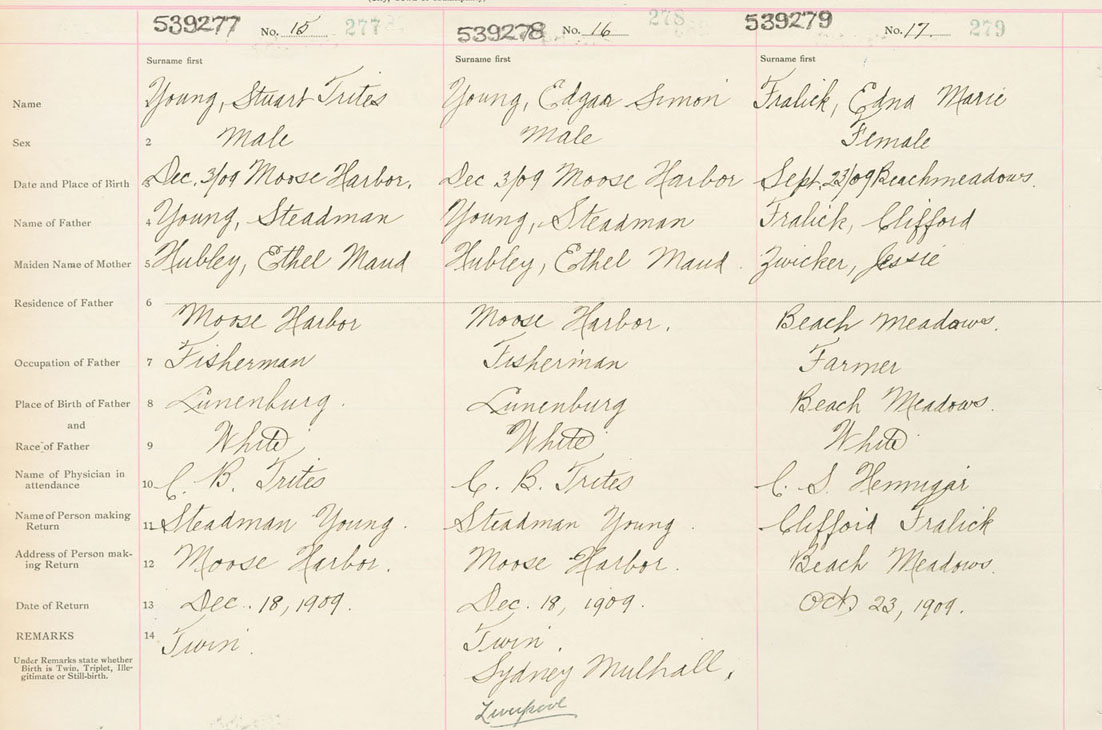 539277 No. 15 277 539278 No. 16 278 539279 No. 17. 279
Surname first Surname first Surname first
Name 1 Young, Stuart Trites Young, Edgar Simon Fralick, Edna Marie
Sex 2 Male Male Female
Date and Place of Birth 3 Dec. 3/09 Moose Harbor. Dec 3/09 Moose Harbor Sept. 23/09 Beachmeadows.
Name of Father 4 Young, Steadman Young, Steadman Fralick, Clifford
Maiden Name of Mother 5 Hubley, Ethel Maud Hubley, Ethel Maud. Zwicker, Jessie
Residence of Father 6 Moose Harbor Moose Harbor. Beach Meadows.
Occupation of Father 7 Fisherman Fisherman Farmer
Place of Birth of Father 8 Lunenburg. Lunenburg Beach Meadows.
and
Race of Father 9 White White White
Name of Physician in
attendance 10 C. B. Trites C. B. Trites C. S. Hennigar
Name of Person making
Return 11 Steadman Young. Steadman Young. Clifford Fralick
Address of Person mak-
ing Return 12 Moose Harbor. Moose Harbor. Beach Meadows.
Date of Return 13 Dec. 18, 1909. Dec. 18, 1909. Oct 23, 1909.
REMARKS 14 Twin. Twin.
Under Remarks state whether
Birth is Twin, Triplet, Ille-
gitimate or Still-birth.
Sydney Mulhall,
Liverpool